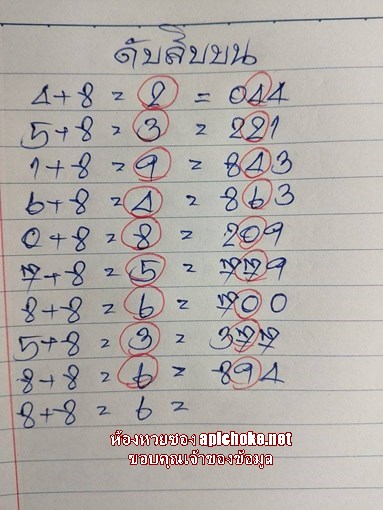 ดับสิบบน
4+8 = 2 = 044
5+8 = 3 = 221
1+8 = 9 = 843
6+8 = 4 = 863
0+8 = 8 = 209
7+8 = 5 = 779
8+8 = 6 = 700
5+8 = 3 = 377
8+8 = 6 = 894
8+8 = 6 =
ห้องหวยซอง apichoke.net
ขอบคุณเจ้าของข้อมูล